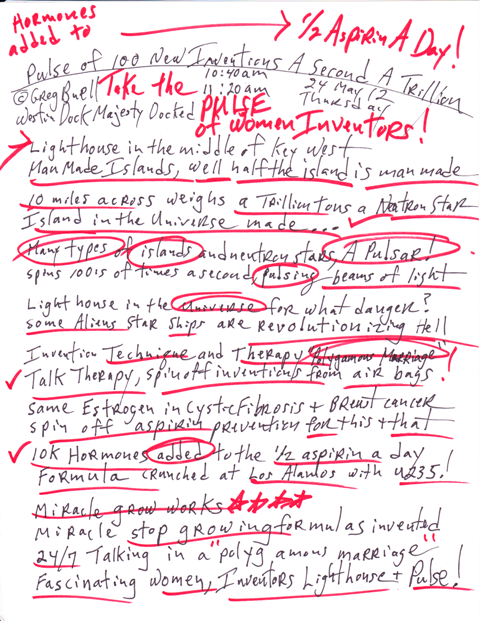 Hormones
added to
1/2 Aspirin A Day!
Pulse of 100 New Inventions A Second A Trillion
10:40am
© Greg Buell Take the 11:20am 24 May 12
Westin Dock Majesty Docked PULSE Thursday
of women Inventors!
Lighthouse in the middle of Key West
Man Made Islands, well half the island is man made
10 miles across weighs a Trillion tons a Neutron Star
Island in the Universe made...
Many types of islands and neutron stars, A Pulsar!
spins 100is of times a second, pulsing beams of light
Light house in the Universe for what danger?
some Aliens Star Ships are revolutionizing Hell
Invention Technique and Therapy "Polygamous Marriage"
Talk Therapy, spin off inventions from air bags!
Same Estrogen in Cystic Fibrosis + Breast cancer
spin off aspirin prevention for this + that
10K Hormones added to the 1/2 aspirin a day
Formula crunched at Los Alamos with u235!
Miracle grow works
Miracle stop growing formulas invented
24/7 Talking in a "polygamous marriage"
Fascinating women, Inventors Lighthouse + Pulse!